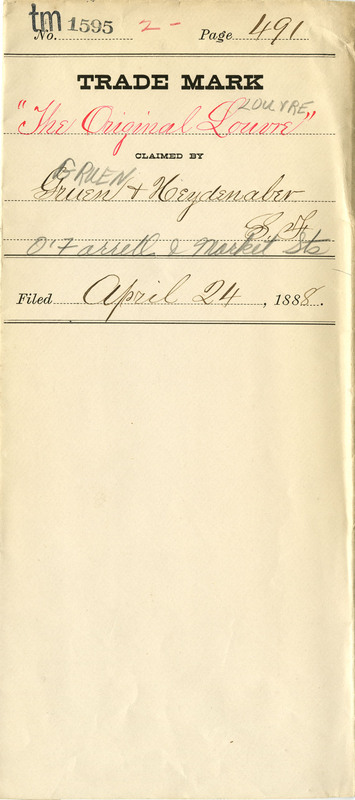 tm 1595
No. 2- Page 491
TRADE MARK
LOUVRE
"The Original Louvre"
CLAIMED BY
GRUEN
Gruen & Heydenaber
S. F.
O'Farrell & Market Sts
Filed April 24, 1888.